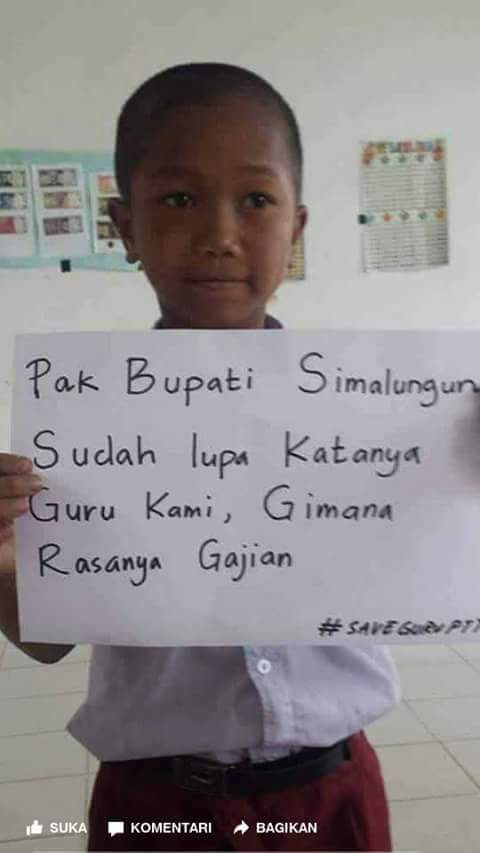 Pak Bupati Simalungun
Sudah lupa Katanya
Guru Kami, Gimana
Rasanya Gajian
#SAVEGURUPTT
SUKA KOMENTARI BAGIKAN